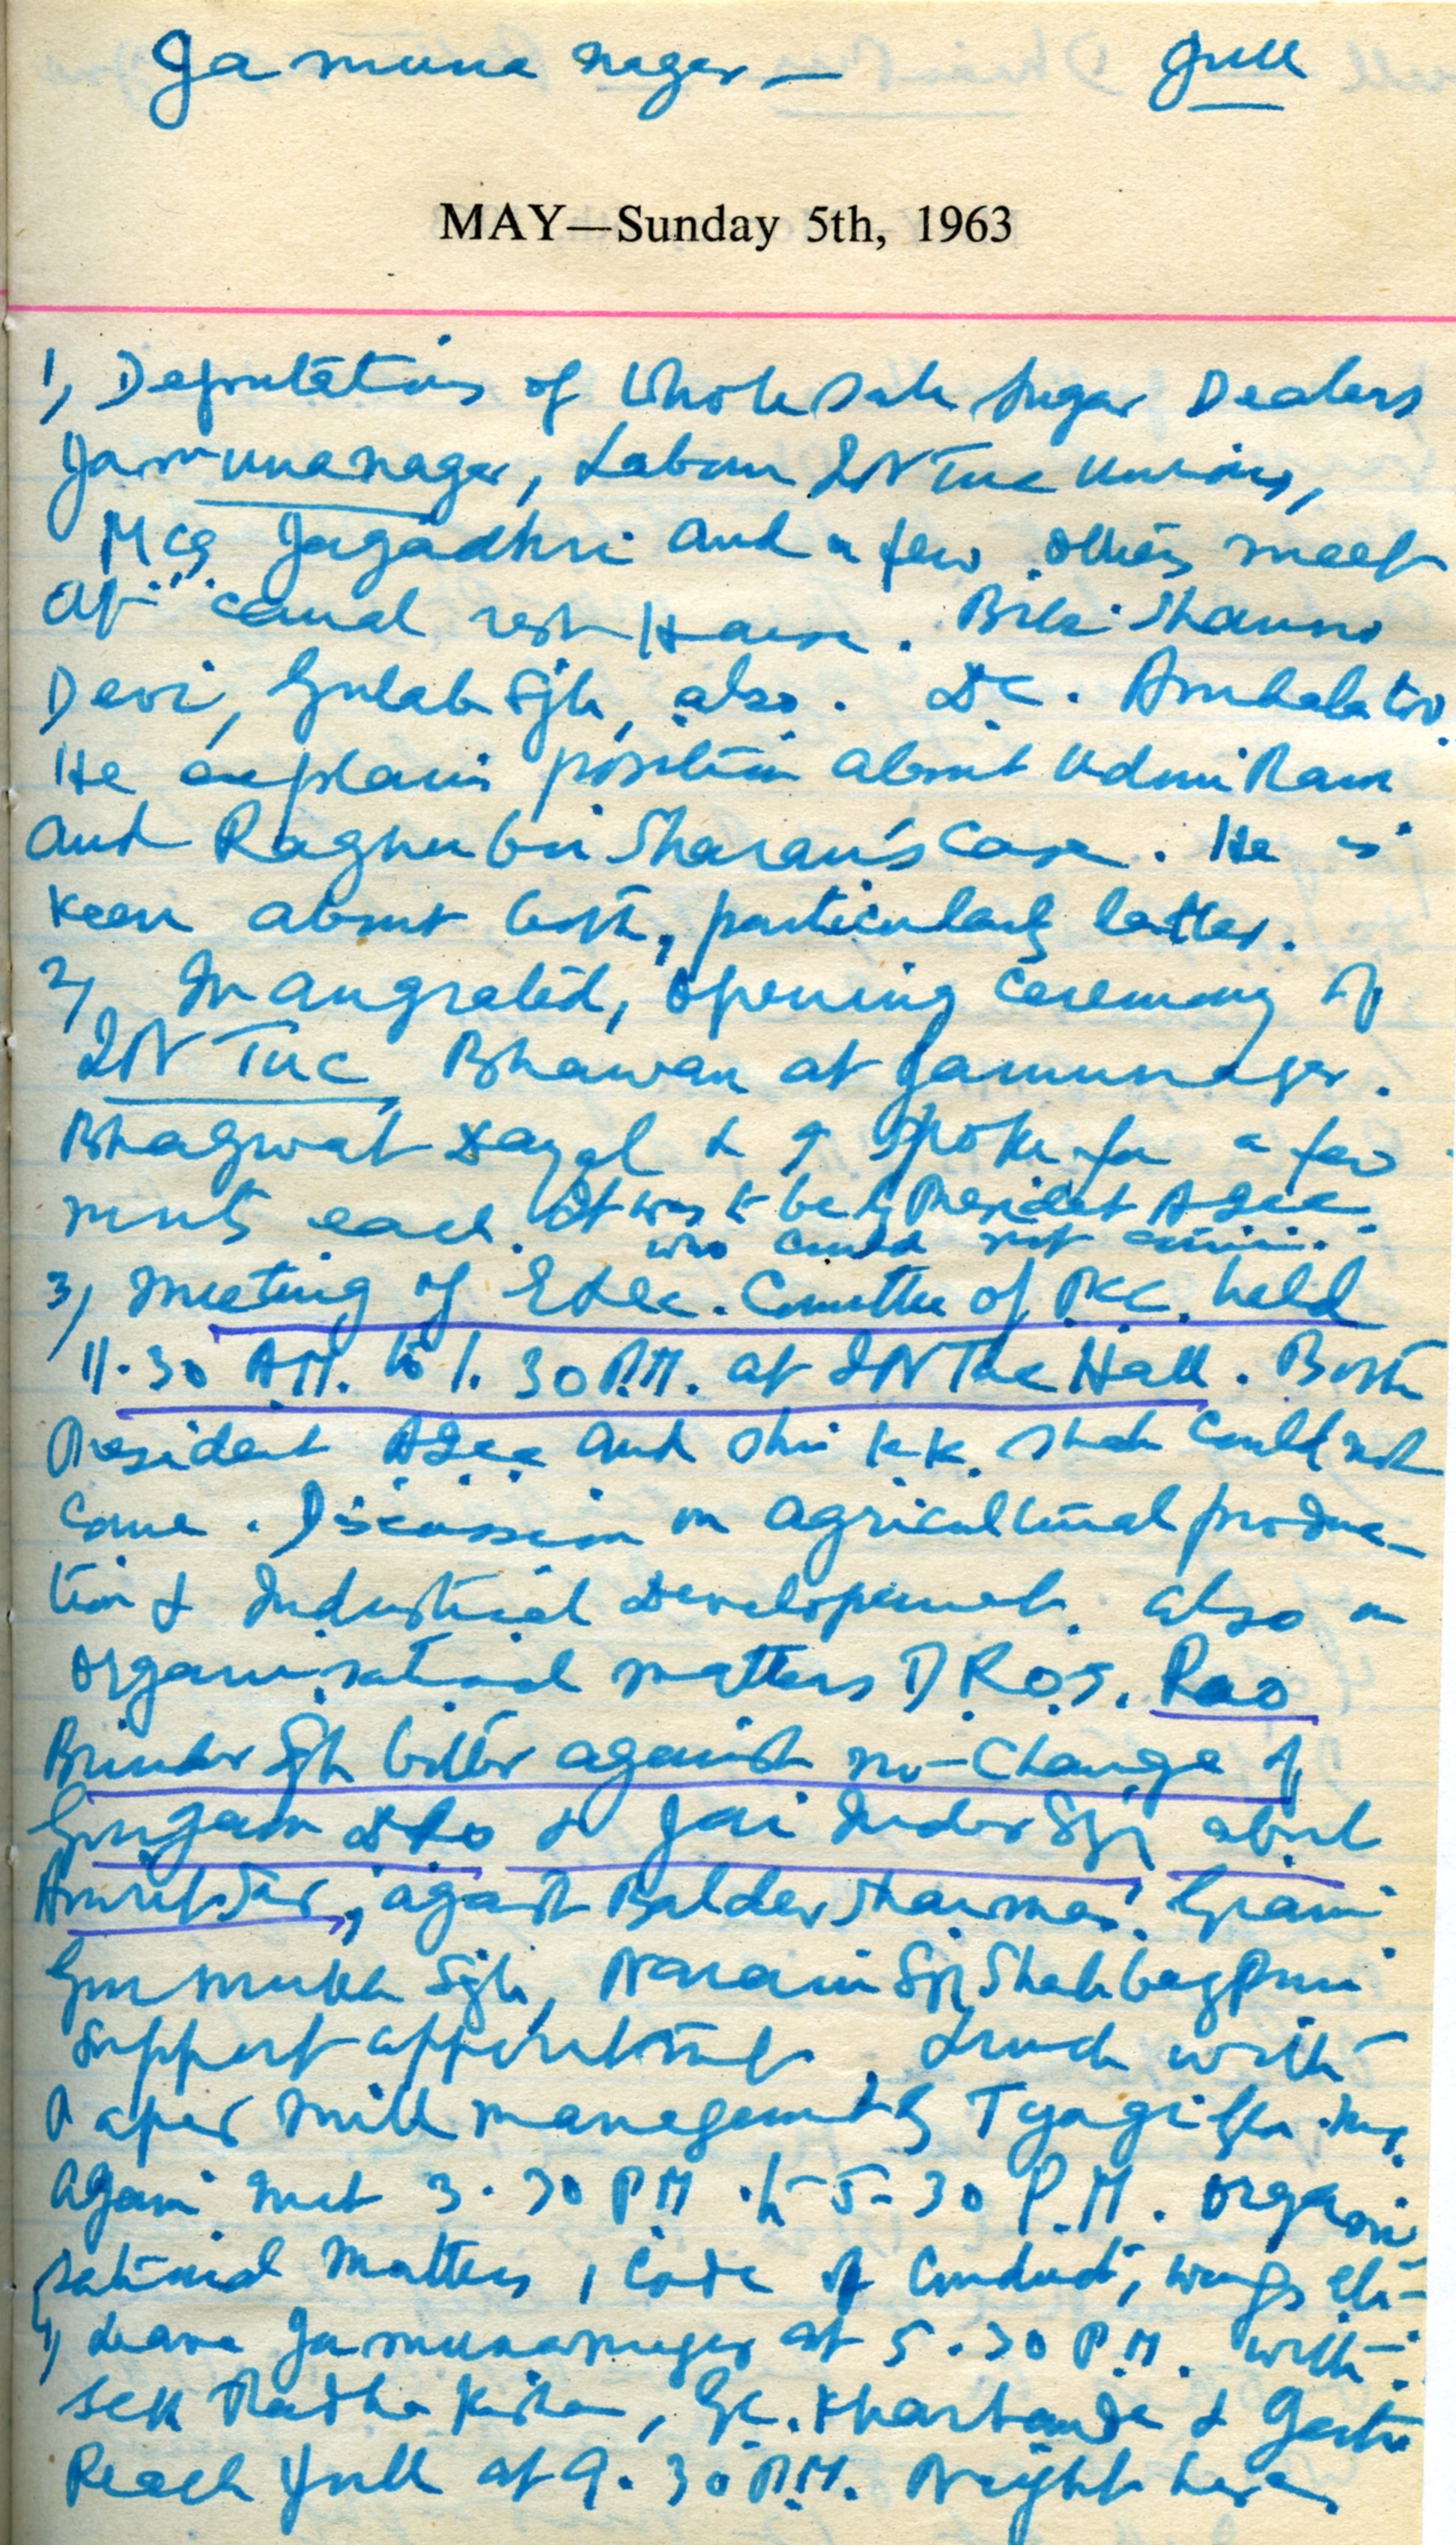 Jamuna nagar — Jull
MAY—Sunday 5th, 1963
1, Deputations of Whole Sale Sugar Dealers
Jamunanagar, Labour INTUC Unions,
Mcg Jagadhri and a few others meet
at canal rest House. Bibi Shanno
Devi, Gulab Sgh, also. D.C. Ambala too.
He explains position about Udmi Ram
and Raghubir Sharan's Case. He is
keen about both, particularly latter.
2, Inaugrated, opening Ceremony of
INTUC Bhawan at Jamunager.
Bhagwat Dayal & I spoke for a few
mnts each. It was to be by President AICC.
who could not come.
3, Meeting of Exec. Comittee of PCC. held
11.30 A.M. to 1.30 P.M. at INTUC Hall. Both
President AICC and Shri K.K. Shah Could not
Come. Discussion on agricultural produc-
tion & Industrial Developement. also on
organisational matters D.R.O.S. Rao
Birinder Sgh bitter against no-Change of
Gurgaon DRO & Jai Inder Sgh about
Amritsar, against Baldev Sharma. Giani
Gurmukh Sgh, Narain Sgh Shahbazpuri
support appointments. Lunch with
Paper Mill management by Tyagi
Again met 3.30 PM to 5-30 P.M. Organi-
sational Matters, Code of Conduct, wings etc-
4, Leave Jamunanager at 5.30 P.M. with
Seth Radha Kishan, G.C. Kharbanda &
Reach Jull at 9.30 P.M. Night here.